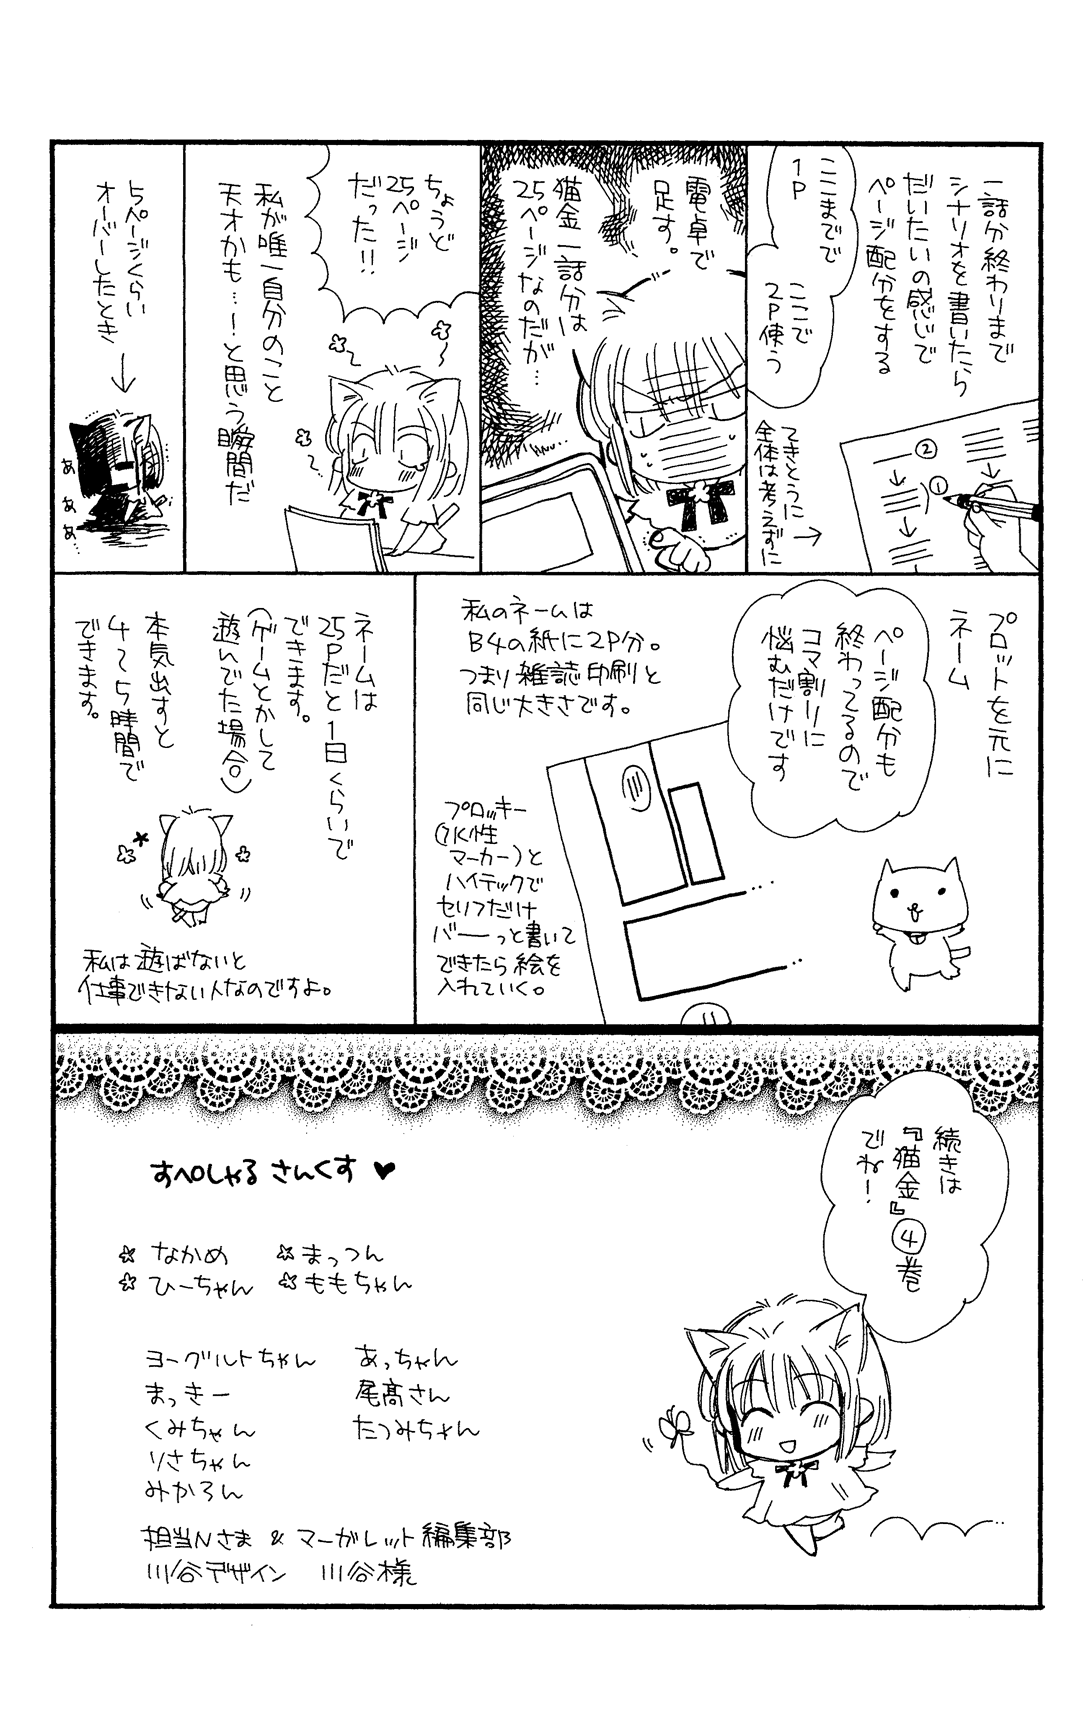 一話分終わりまで
シナリオを書いたら
だいたいの感じで
ページ配分をする
ここまでで
1P
ここで
2P使う
②
①
てきとうに
全体は考えずに
電卓で
足す。
猫金一話分は
25ページなのだが…
ちょうど
25ページ
だった!!
私が唯一自分のこと
天才かも…!と思う瞬間だ
5ページくらい
オーバーしたとき
あぁぁ…
プロットを元に
ネーム
ページ配分も
終わってるので
コマ割りに
悩むだけです
私のネームは
B4の紙に2P分。
つまり雑誌印刷と
同じ大きさです。
プロッキー
(水性
マーカー)と
ハイテックで
セリフだけ
バーーっと書いて
できたら絵を
入れていく。
ネームは
25Pだと1日くらいで
できます。
(ゲームとかして
遊んでた場合)
本気出すと
4〜5時間で
できます。
私は遊ばないと
仕事できない人なのですよ。
続きは
『猫金』④巻
でね!
すぺしゃる さんくす♥
なかめ まっつん
ひーちゃん ももちゃん
ヨーグルトちゃん あっちゃん
まっきー 尾高さん
くみちゃん たつみちゃん
りさちゃん
みかろん
担当Nさま & マーガレット編集部
川谷デザイン 川谷様